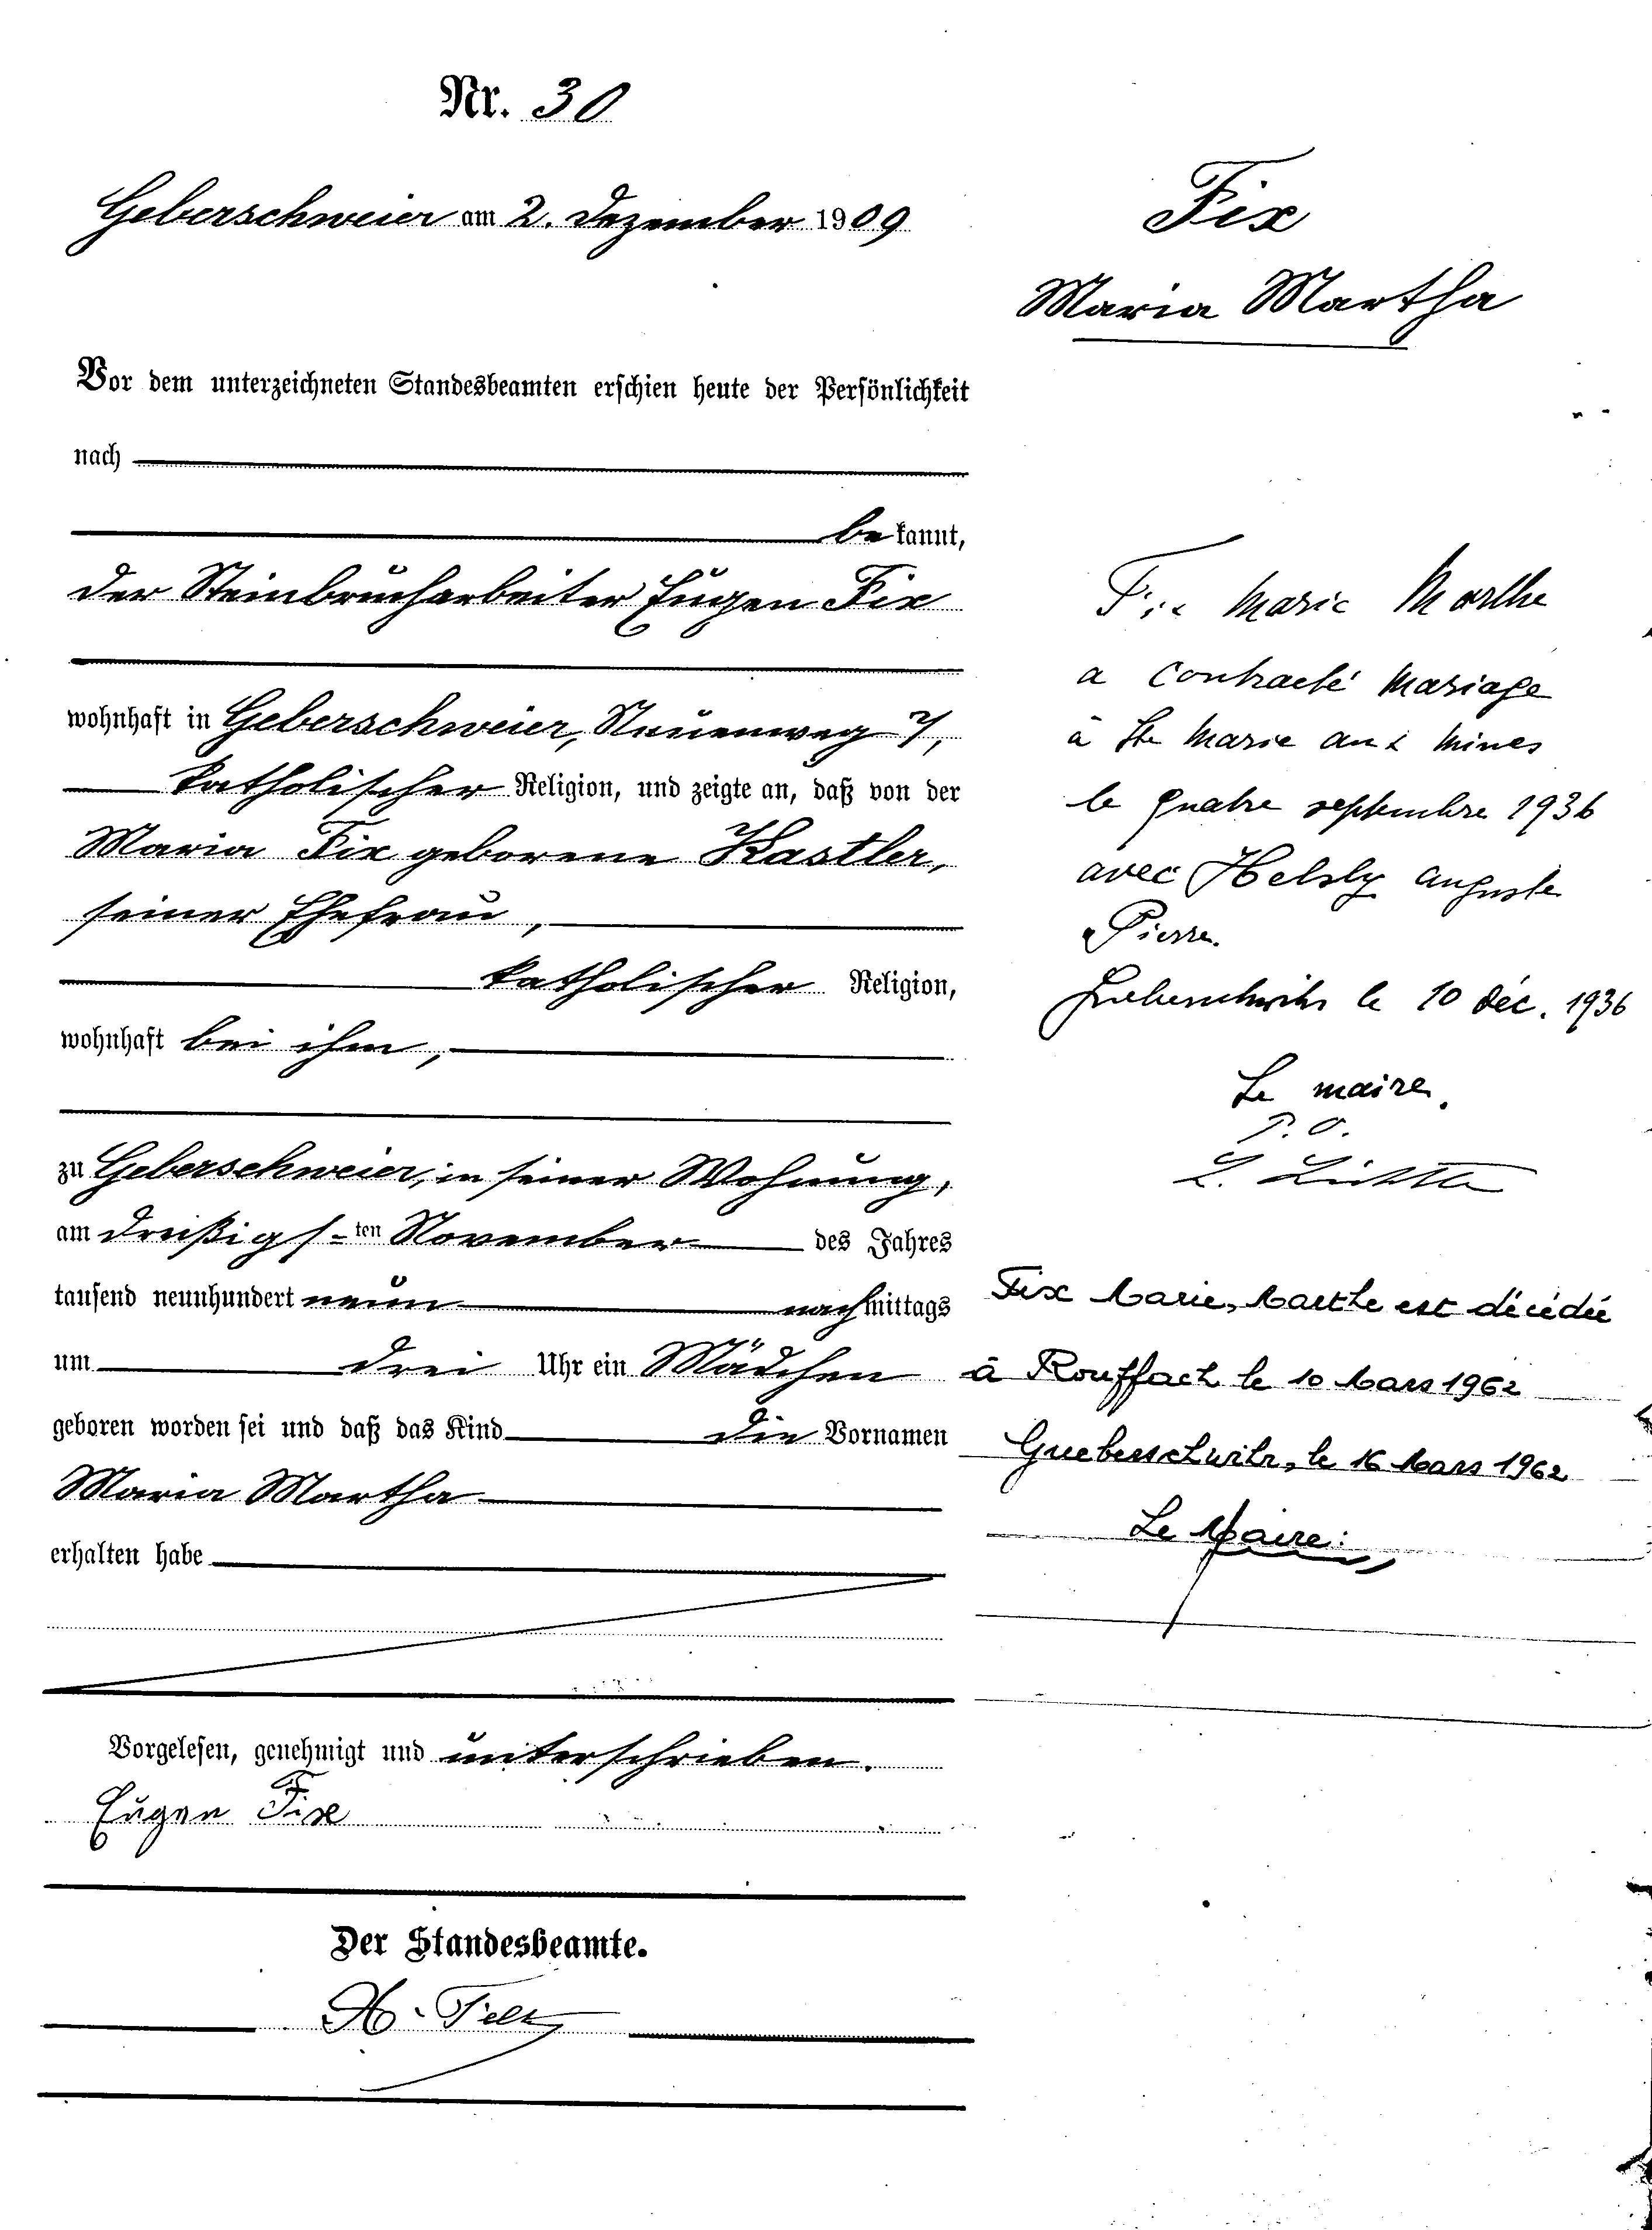 Nr. 30
Geberschweier am 2. Dezember 1909
Vor dem unterzeichneten Standesbeamten erschien heute der Persönlichkeit
nach
bekannt,
der Steinbrucharbeiter Eugen Fix
wohnhaft in Geberschweier, Neuenweg 7,
katholischer Religion, und zeigte an, daß von der
Maria Fix geborene Kastler,
seiner Ehefrau,
katholischer Religion,
wohnhaft bei ihm,
zu Geberschweier, in seiner Wohnung,
am dreißigs-ten November des Jahres
tausend neunhundert neun nachmittags
um drei Uhr ein Mädchen
geboren worden sei und daß das Kind die Vornamen
Maria Martha
erhalten habe
Vorgelesen, genehmigt und unterschrieben.
Eugen Fix
Der Standesbeamte.
Fix
Maria Martha
Fix Marie Marthe
a contracté mariage
à Ste Marie aux Mines
le quatre septembre 1936
avec Helsly Auguste
Pierre.
Gueberschwihr le 10 déc. 1936
Le maire.
P. O.
Fix Marie, Marthe est décédée
à Rouffach le 10 Mars 1962
Gueberschwihr, le 16 Mars 1962
Le Maire: